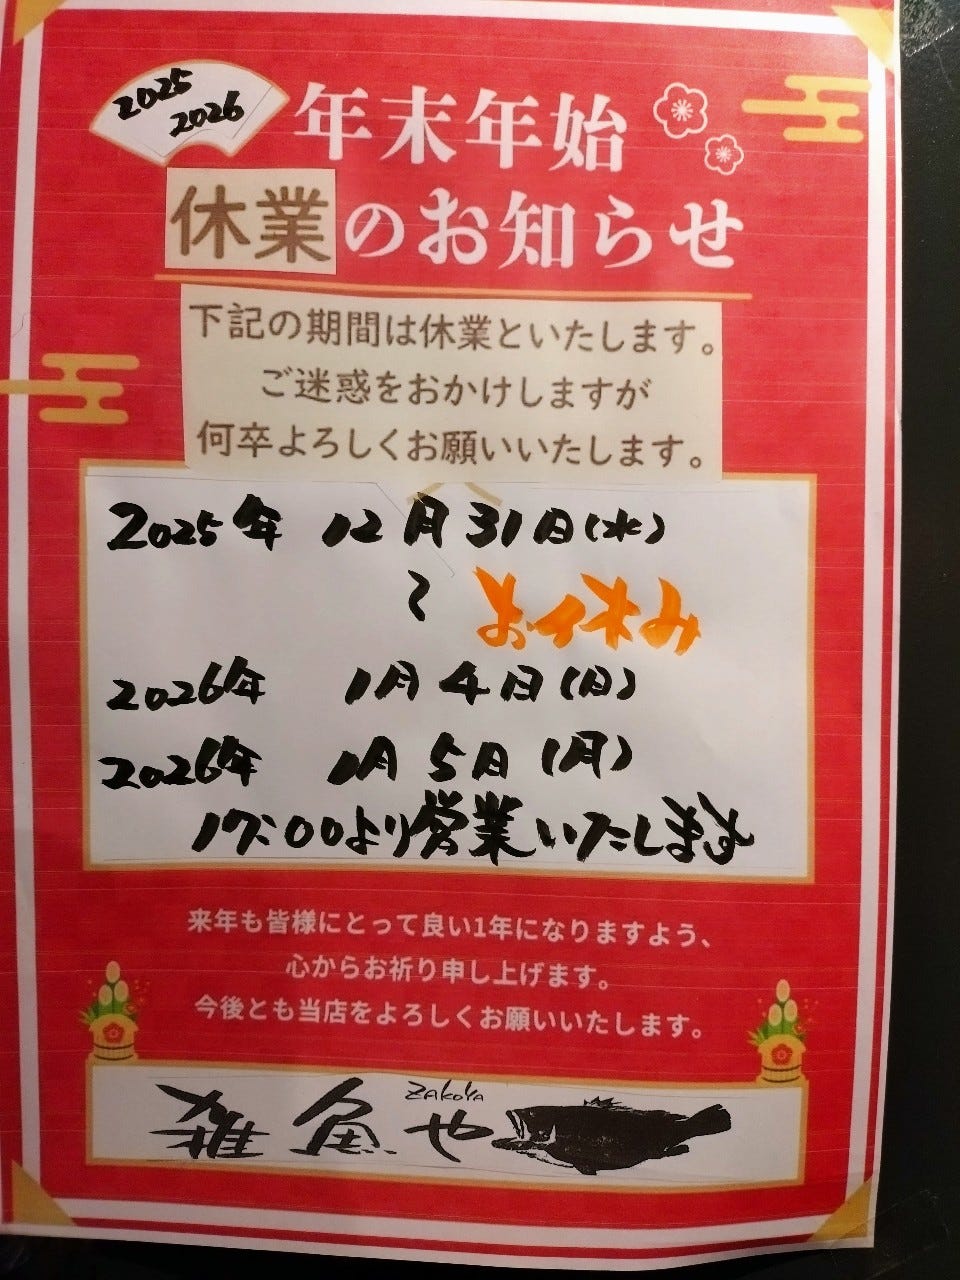 2025
2026
年末年始
休業のお知らせ
下記の期間は休業といたします。
ご迷惑をおかけしますが
何卒よろしくお願いいたします。
2025年 12月31日(水)
〜 お休み
2026年 1月4日(日)
2026年 1月5日(月)
17:00より営業いたします
来年も皆様にとって良い1年になりますよう、
心からお祈り申し上げます。
今後とも当店をよろしくお願いいたします。
ZAKOYA
雑魚や